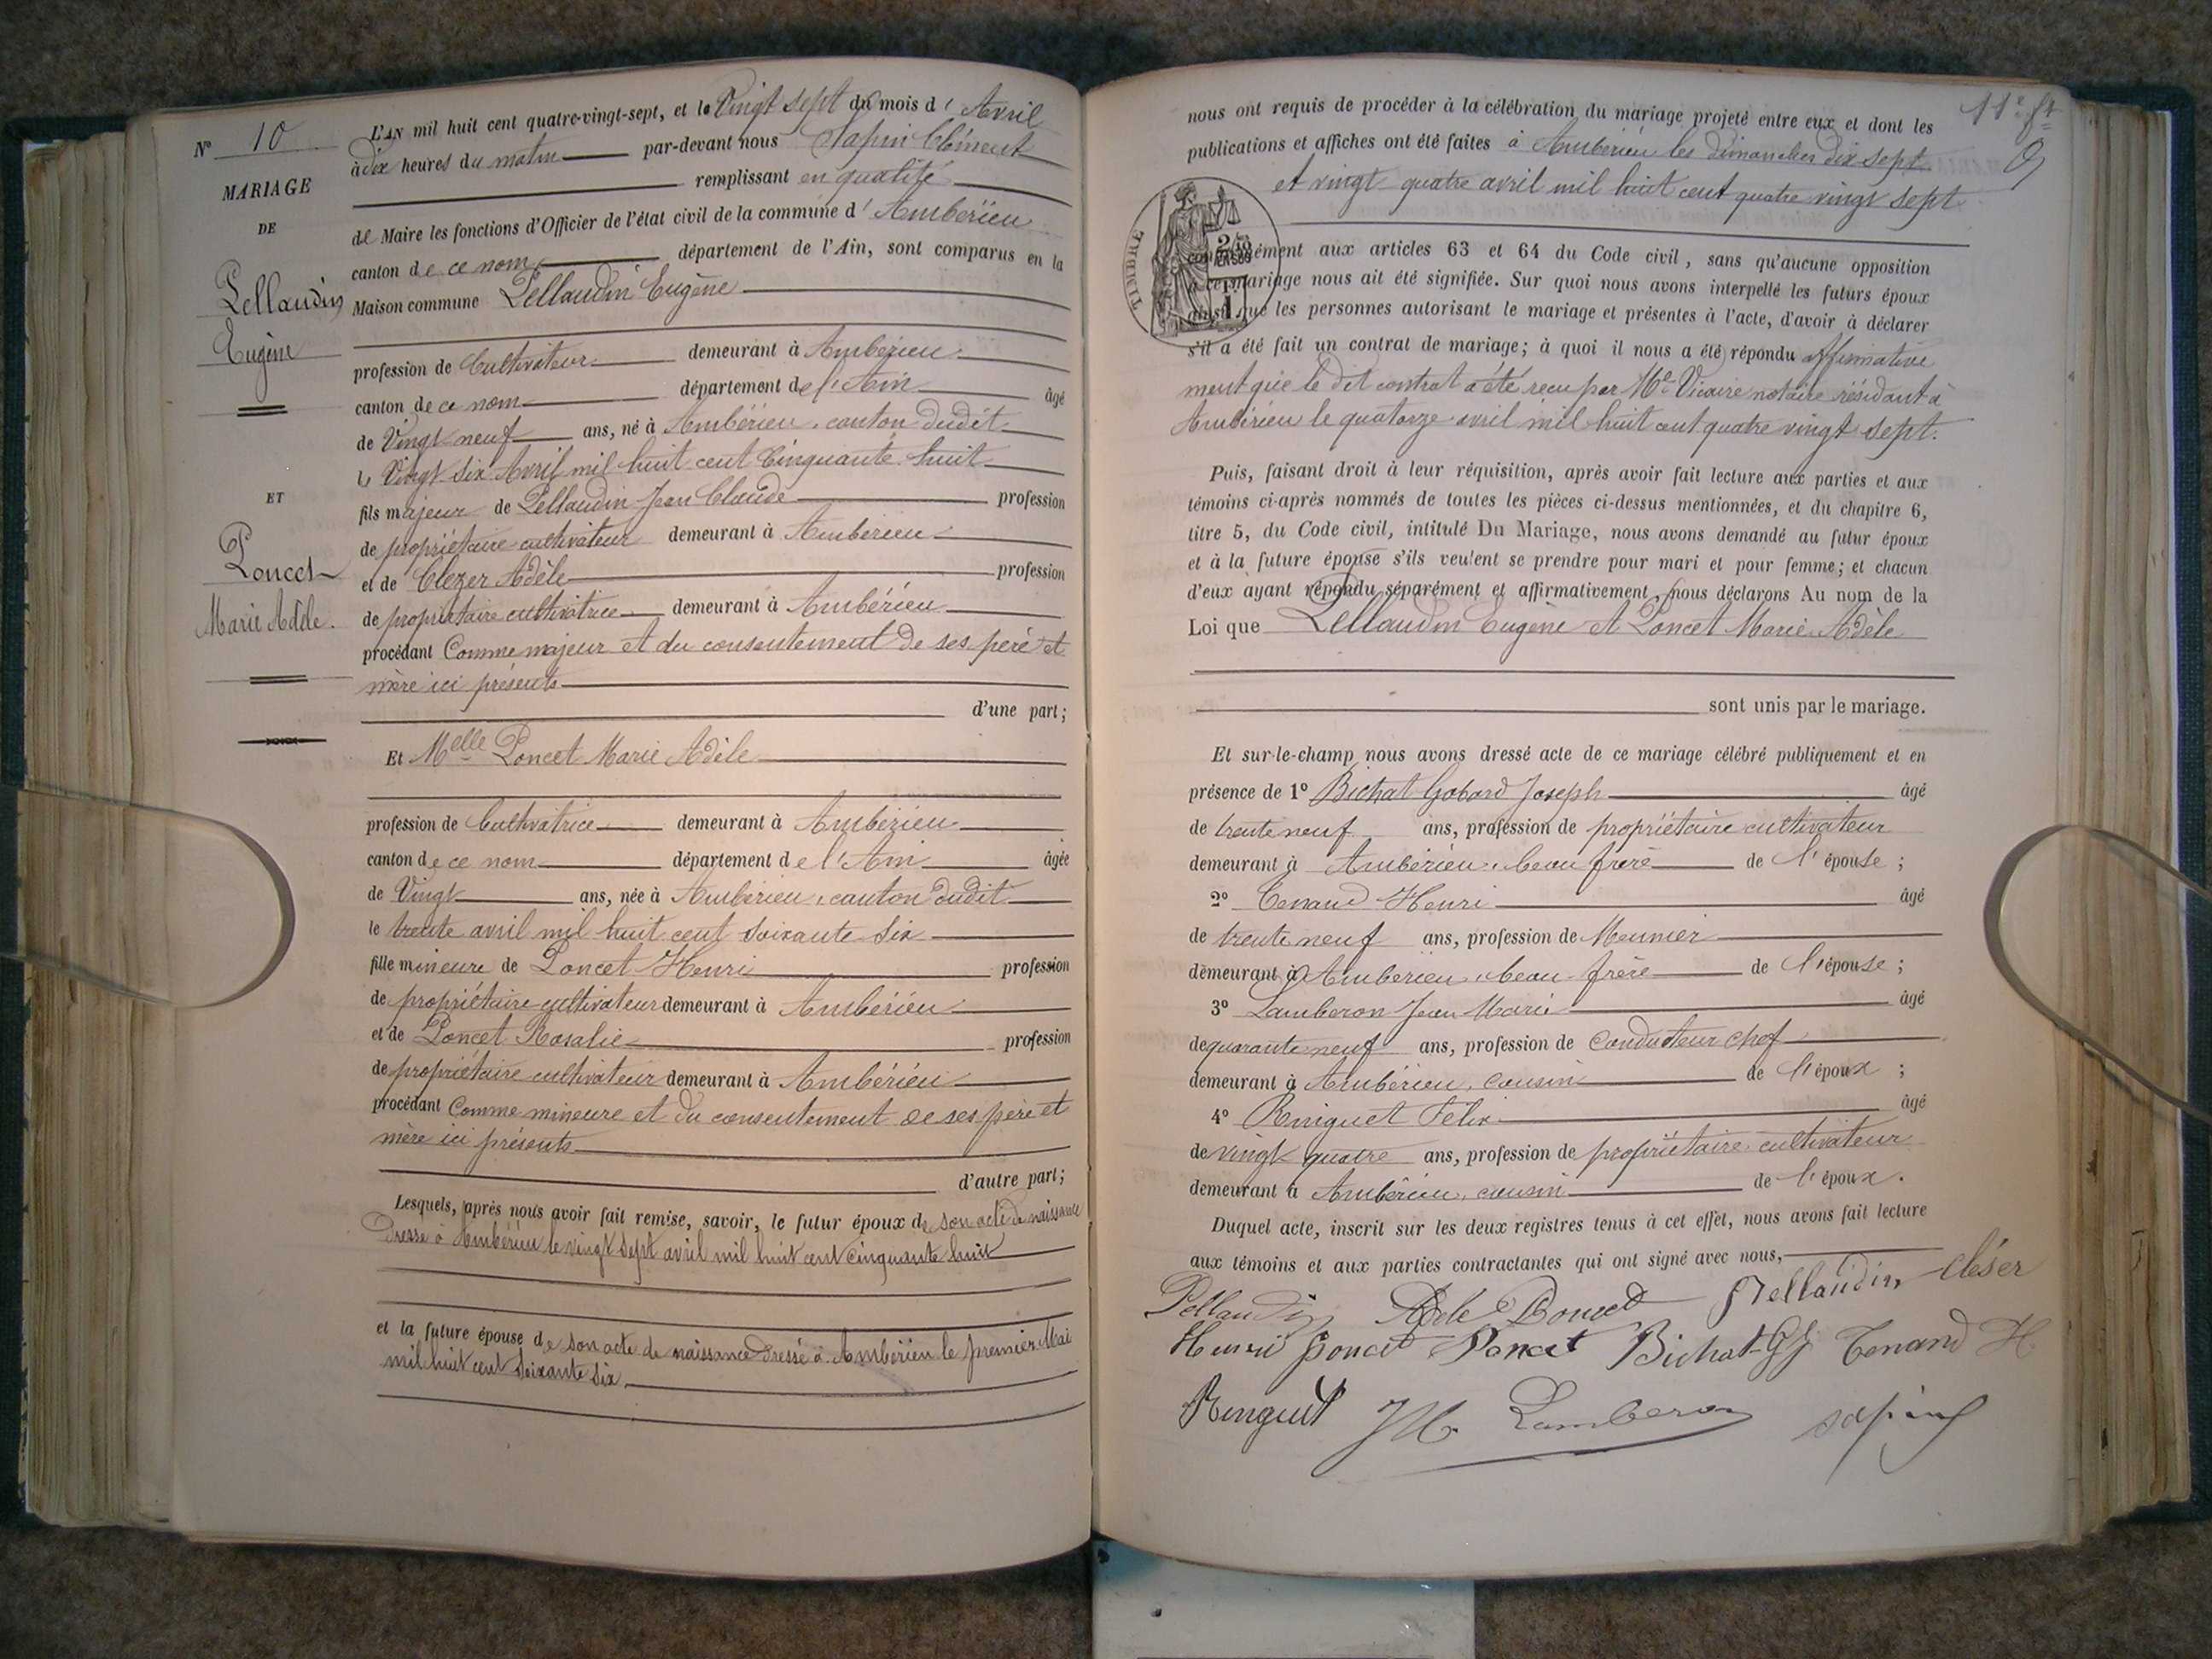 N° 10
MARIAGE
DE
Pellaudin
Eugène
ET
Poncet
Marie Adèle.
L'AN mil huit cent quatre-vingt-sept, et le Vingt sept du mois d' Avril
à dix heures du matin par-devant nous Sapin Clément
remplissant en qualité
de Maire les fonctions d'Officier de l'état civil de la commune d' Ambérieu
canton de ce nom, département de l'Ain, sont comparus en la
Maison commune Pellaudin Eugène
profession de Cultivateur demeurant à Ambérieu
canton de ce nom département de l'Ain âgé
de Vingt neuf ans, né à Ambérieu, canton dudit
le Vingt six Avril mil huit cent Cinquante huit
fils majeur de Pellaudin Jean Claude profession
de propriétaire cultivateur demeurant à Ambérieu
et de Clézer Adèle profession
de propriétaire cultivatrice demeurant à Ambérieu
procédant Comme majeur et du consentement de ses père et
mère ici présents
d'une part;
Et Melle Poncet Marie Adèle
profession de Cultivatrice demeurant à Ambérieu
canton de ce nom département de l'Ain âgée
de Vingt ans, née à Ambérieu, canton dudit
le trente avril mil huit cent soixante six
fille mineure de Poncet Henri profession
de propriétaire cultivateur demeurant à Ambérieu
et de Poncet Rosalie profession
de propriétaire cultivateur demeurant à Ambérieu
procédant Comme mineure et du consentement de ses père et
mère ici présents
d'autre part;
Lesquels, après nous avoir fait remise, savoir, le futur époux de son acte de naissance
dressé à Ambérieu le vingt sept avril mil huit cent cinquante huit
et la future épouse de son acte de naissance dressé à Ambérieu le premier Mai
mil huit cent soixante six
11e ft
nous ont requis de procéder à la célébration du mariage projeté entre eux et dont les
publications et affiches ont été faites à Ambérieu les dimanches dix sept
et vingt quatre avril mil huit cent quatre vingt sept
TIMBRE
conformément aux articles 63 et 64 du Code civil, sans qu'aucune opposition
à ce mariage nous ait été signifiée. Sur quoi nous avons interpellé les futurs époux
ainsi que les personnes autorisant le mariage et présentes à l'acte, d'avoir à déclarer
s'il a été fait un contrat de mariage; à quoi il nous a été répondu affirmative
ment que le dit contrat a été reçu par Me Vicaire notaire résidant à
Ambérieu le quatorze avril mil huit cent quatre vingt sept.
Puis, faisant droit à leur réquisition, après avoir fait lecture aux parties et aux
témoins ci-après nommés de toutes les pièces ci-dessus mentionnées, et du chapitre 6,
titre 5, du Code civil, intitulé Du Mariage, nous avons demandé au futur époux
et à la future épouse s'ils veulent se prendre pour mari et pour femme; et chacun
d'eux ayant répondu séparément et affirmativement, nous déclarons Au nom de la
Loi que Pellaudin Eugène et Poncet Marie Adèle
sont unis par le mariage.
Et sur-le-champ nous avons dressé acte de ce mariage célébré publiquement et en
présence de 1° Bichat Gobard Joseph âgé
de trente neuf ans, profession de propriétaire cultivateur
demeurant à Ambérieu, beau frère de l'épouse;
2° Tenand Henri âgé
de trente neuf ans, profession de Meunier
demeurant à Ambérieu, beau-frère de l'épouse;
3° Lamberon Jean Marie âgé
de quarante neuf ans, profession de Conducteur chef
demeurant à Ambérieu, cousin de l'époux;
4° Ringuet Félix âgé
de vingt quatre ans, profession de propriétaire cultivateur
demeurant à Ambérieu, cousin de l'époux.
Duquel acte, inscrit sur les deux registres tenus à cet effet, nous avons fait lecture
aux témoins et aux parties contractantes qui ont signé avec nous,
Pellaudin Adèle Poncet Pellaudin Cléser
Henri Poncet Poncet Bichat-GJ Tenand H
Ringuet JM Lamberon Sapin